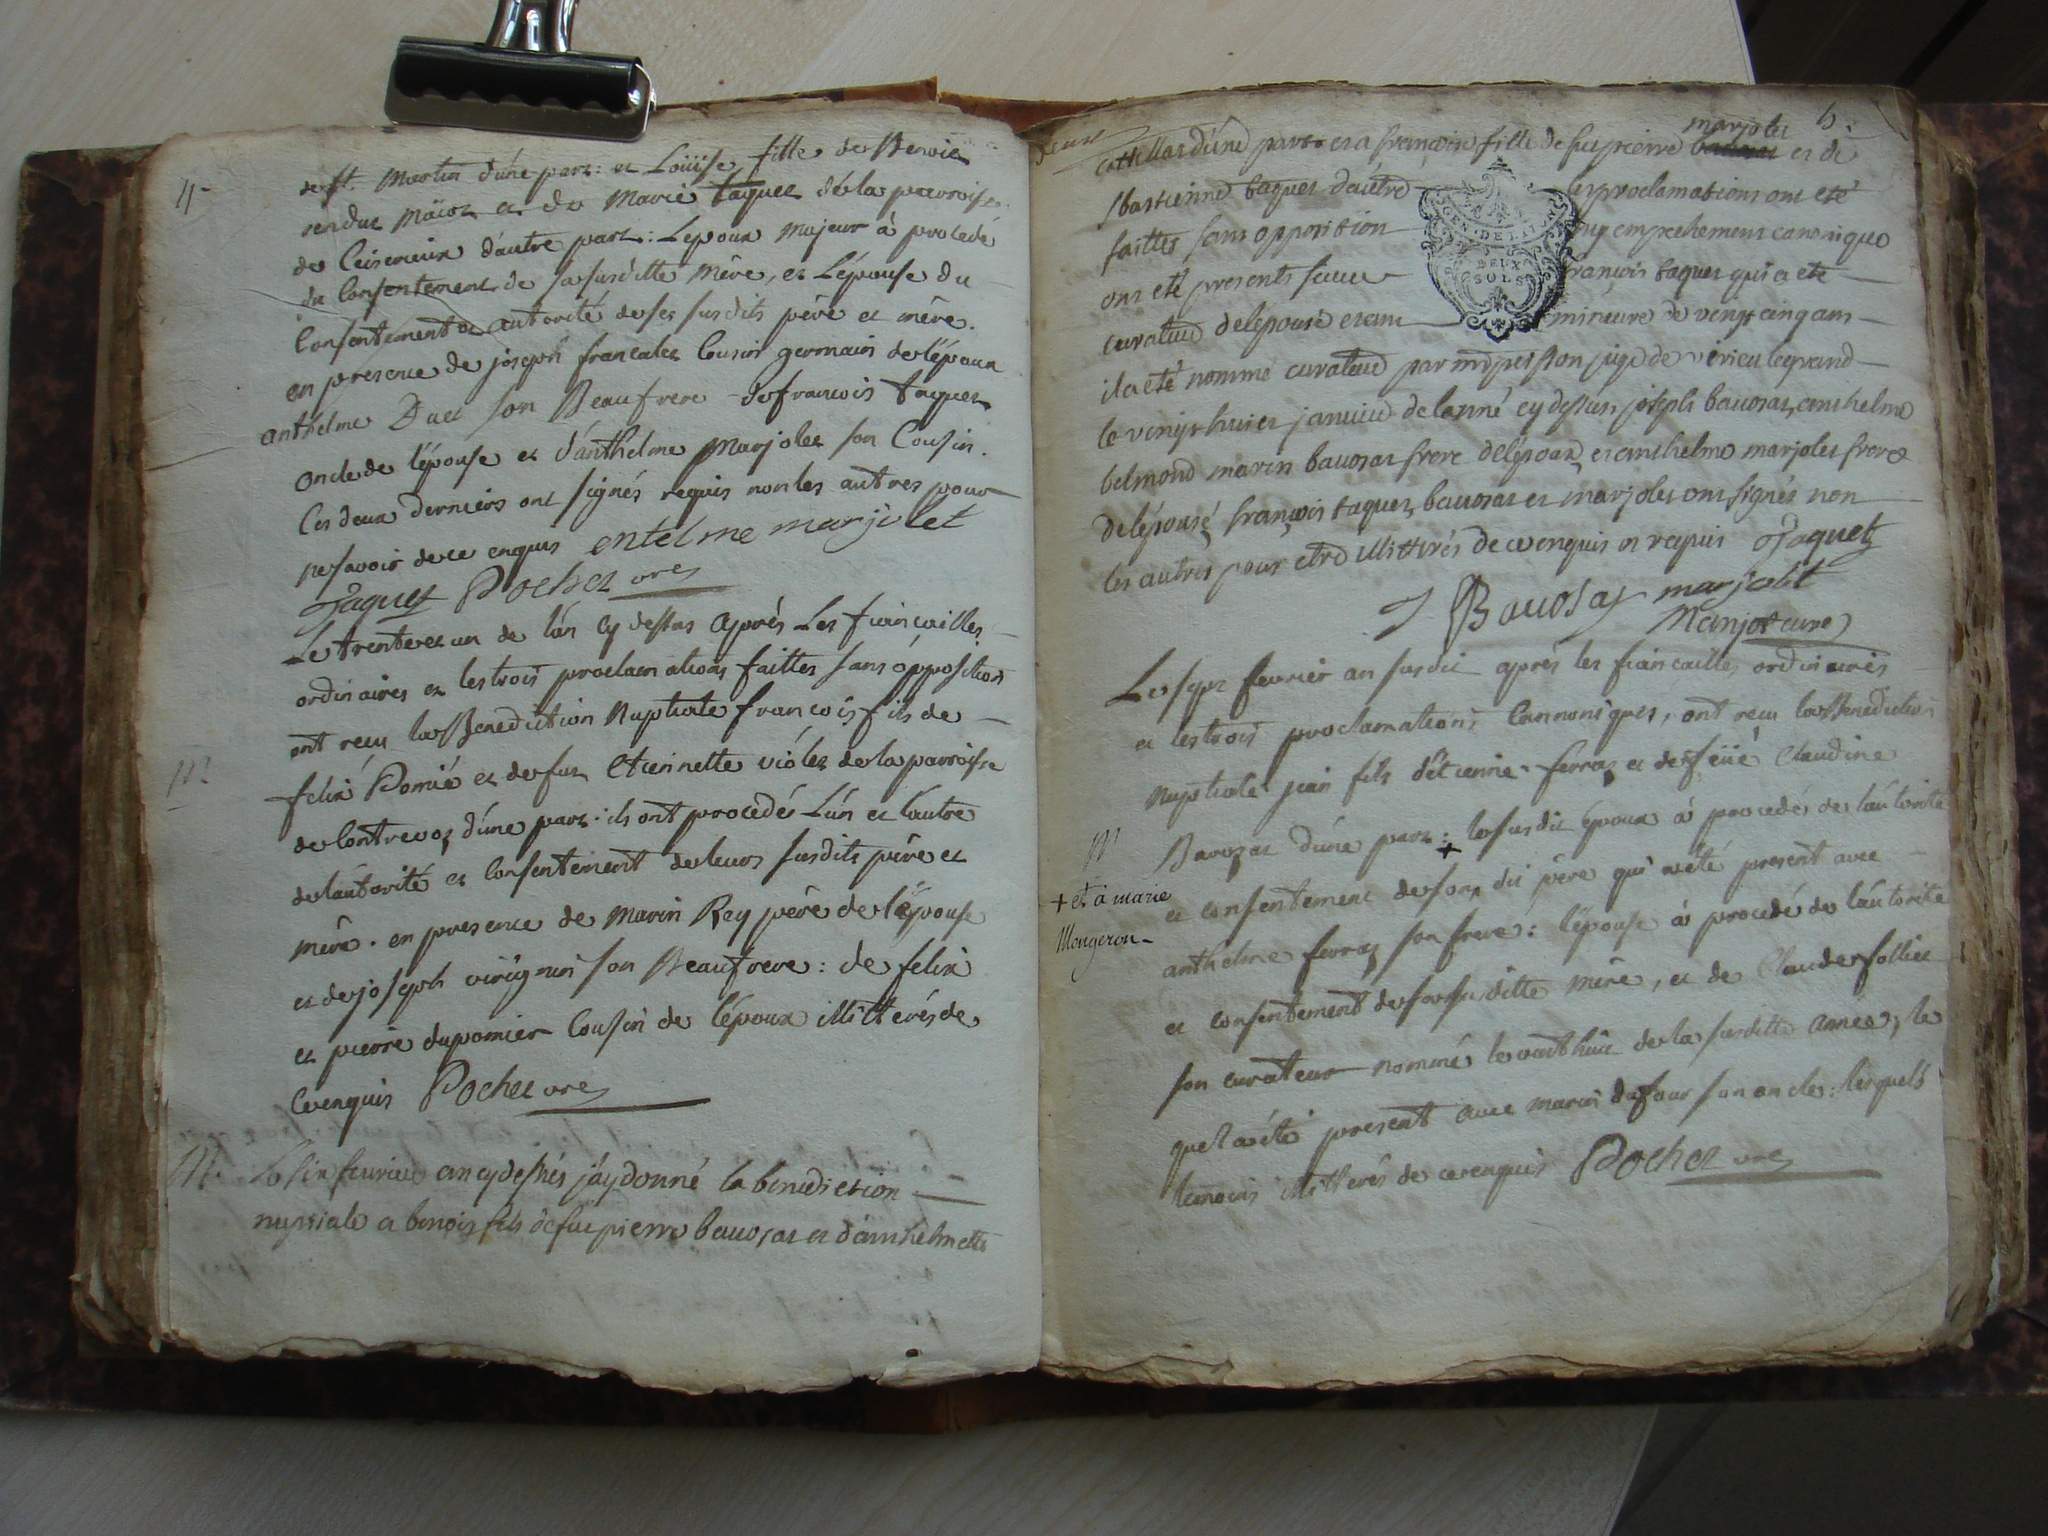 4
de st. Martin d'une part: et Loüise fille de Benoit
rendue et de Marie taquet de la parroisse
de Ceiserieux d'autre part: L'epoux majeur à procedé
du Consentement de sa susditte mère, et L'épouse du
Consentement et autorité de ses susdits père et mère.
en presence de joseph francalet Cousin germain de l'époux
anthelme Duet son Beaufrere de francois taquet
oncle de l'épouse et d'anthelme Marjolet son Cousin.
Ces deux derniers ont signés requis non les autres pour
ne savoir de ce enquis entelme marjolet
Taquet Pochet vre
Le trente et un de l'an cy dessus après Les fiançailles
ordinaires et les trois proclamations faittes sans opposition
ont reçu la Benediction Nuptiale francois fils de
M
felix Pomié et de fut Etiennette violet de la parroisse
de Contrevoz d'une part: ils ont procedé L'un et l'autre
de l'autorité et Consentement de leurs susdits père et
mère. en presence de Marin Rey père de l'épouse
et de joseph son Beaufrere: de felix
et pierre dupomier Cousin de l'époux illitterés de
ce enquis Pochet vre
M. Le six fevrier an cy dessus j'ay donné la benediction
nuptiale a benoit fils de fut pierre bauosat et d'anthelmette
5.
catillas d'une part et a françoise fille de fut pierre marjolet et de
sbastienne taquet d'autre les proclamations ont eté
faittes sans opposition empechement canonique
GEN. DE
DEUX
SOLS
ont eté presents françois taquet qui a eté
curateur de l'epouse mineure de vingt cinq ans
il a eté nommé curateur par juge de virieu le grand
le vingt huit janvier de l'anné cy dessus joseph bauosat, anthelme
belmond marin bauosat frere de l'époux, et anthelme marjolet frere
de l'épouse, françois taquet, bauosat et marjolet ont signés non
les autres pour etre illitterés de ce enquis et requis Taquet
J Bauosat marjolet
Manjot curé
Le sept fevrier an susdit après les fiançailles ordinaires
et les trois proclamations Cannoniques, ont reçu la Benediction
Nuptiale jean fils d'Etienne ferraz et de feüe Claudine
M
Bavozat d'une part: + le susdit époux à procedé de l'autorité
+ et a marie
Mongeron
et consentement de son dit père qui a été present avec
anthelme ferraz son frere: l'épouse à procedé de l'autorité
et consentement de sa susditte mère, et de Claude follier
son curateur nommé le vint huit de la susditte année, le
quel a été present avec marin dufour son oncle: lesquels
temoins illitterés de ce enquis Pochet vre